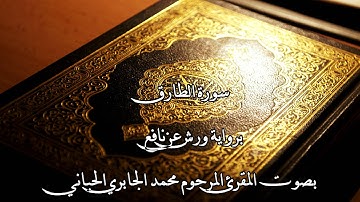 سورة الطارق
برواية ورش عن نافع
بصوت المقرئ المرحوم محمد الجابري الحياني